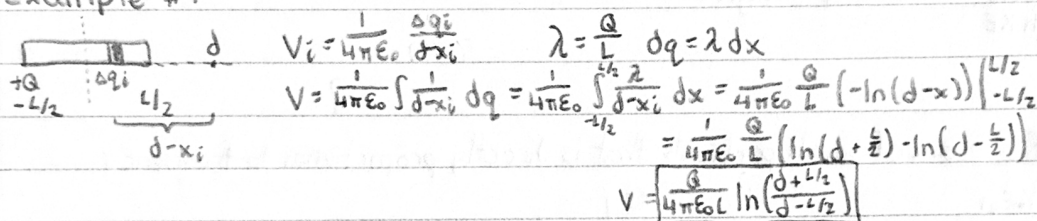 Example #1
d
Vi = 1/4πε₀ Δqi/d-xi    λ = Q/L    dq = λdx
+Q
-L/2    Δqi    L/2
d-xi
V = 1/4πε₀ ∫ 1/d-xi dq = 1/4πε₀ ∫_{-L/2}^{L/2} λ/d-xi dx = 1/4πε₀ Q/L (-ln(d-x))|_{-L/2}^{L/2}
= 1/4πε₀ Q/L (ln(d + L/2) - ln(d - L/2))
V = Q/4πε₀L ln(d+L/2 / d-L/2)